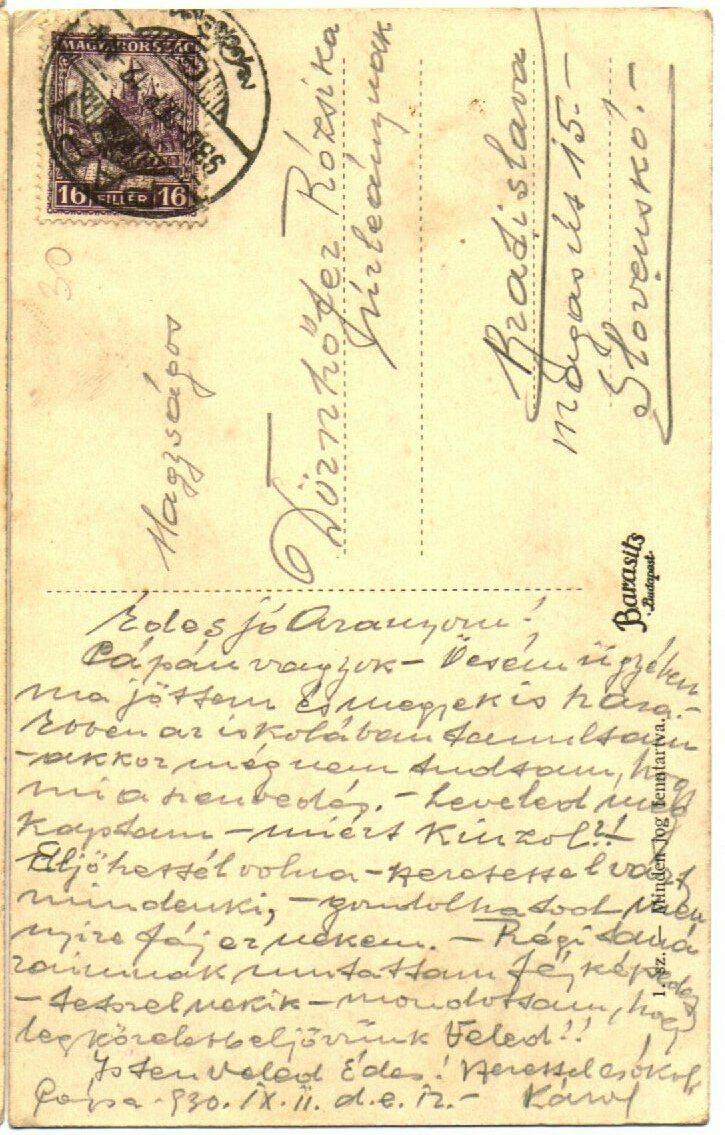 MAGYARORSZÁG
16 FILLÉR 16
30
Nagyságos
Dürnhöfer Rózsika
úrleánynak
Bratislava
Magas út 15.-
Slovenskó.-
Barasits
Budapest.
1. sz. — Minden jog fenntartva.
Édes jó Aranyom!
Pápán vagyok - Öcsém ügyében
ma jöttem és megyek is haza.-
Ebben az iskolában tanultam
- akkor még nem tudtam, hogy
mi a szenvedés. - Leveled
kaptam - miért kínzol!!
Eljöhettél volna - szeretettel várt
mindenki, - gondolhatod meny
nyire fáj ez nekem. - Régi taná
raimnak mutattam fényképedet
- tetszel nekik - mondottam, hogy
legközelebb eljövünk Veled!!
Isten Veled Édes! Szeretettel csókol
Pápa 930. IX. 11. d.e. 12.- Károl